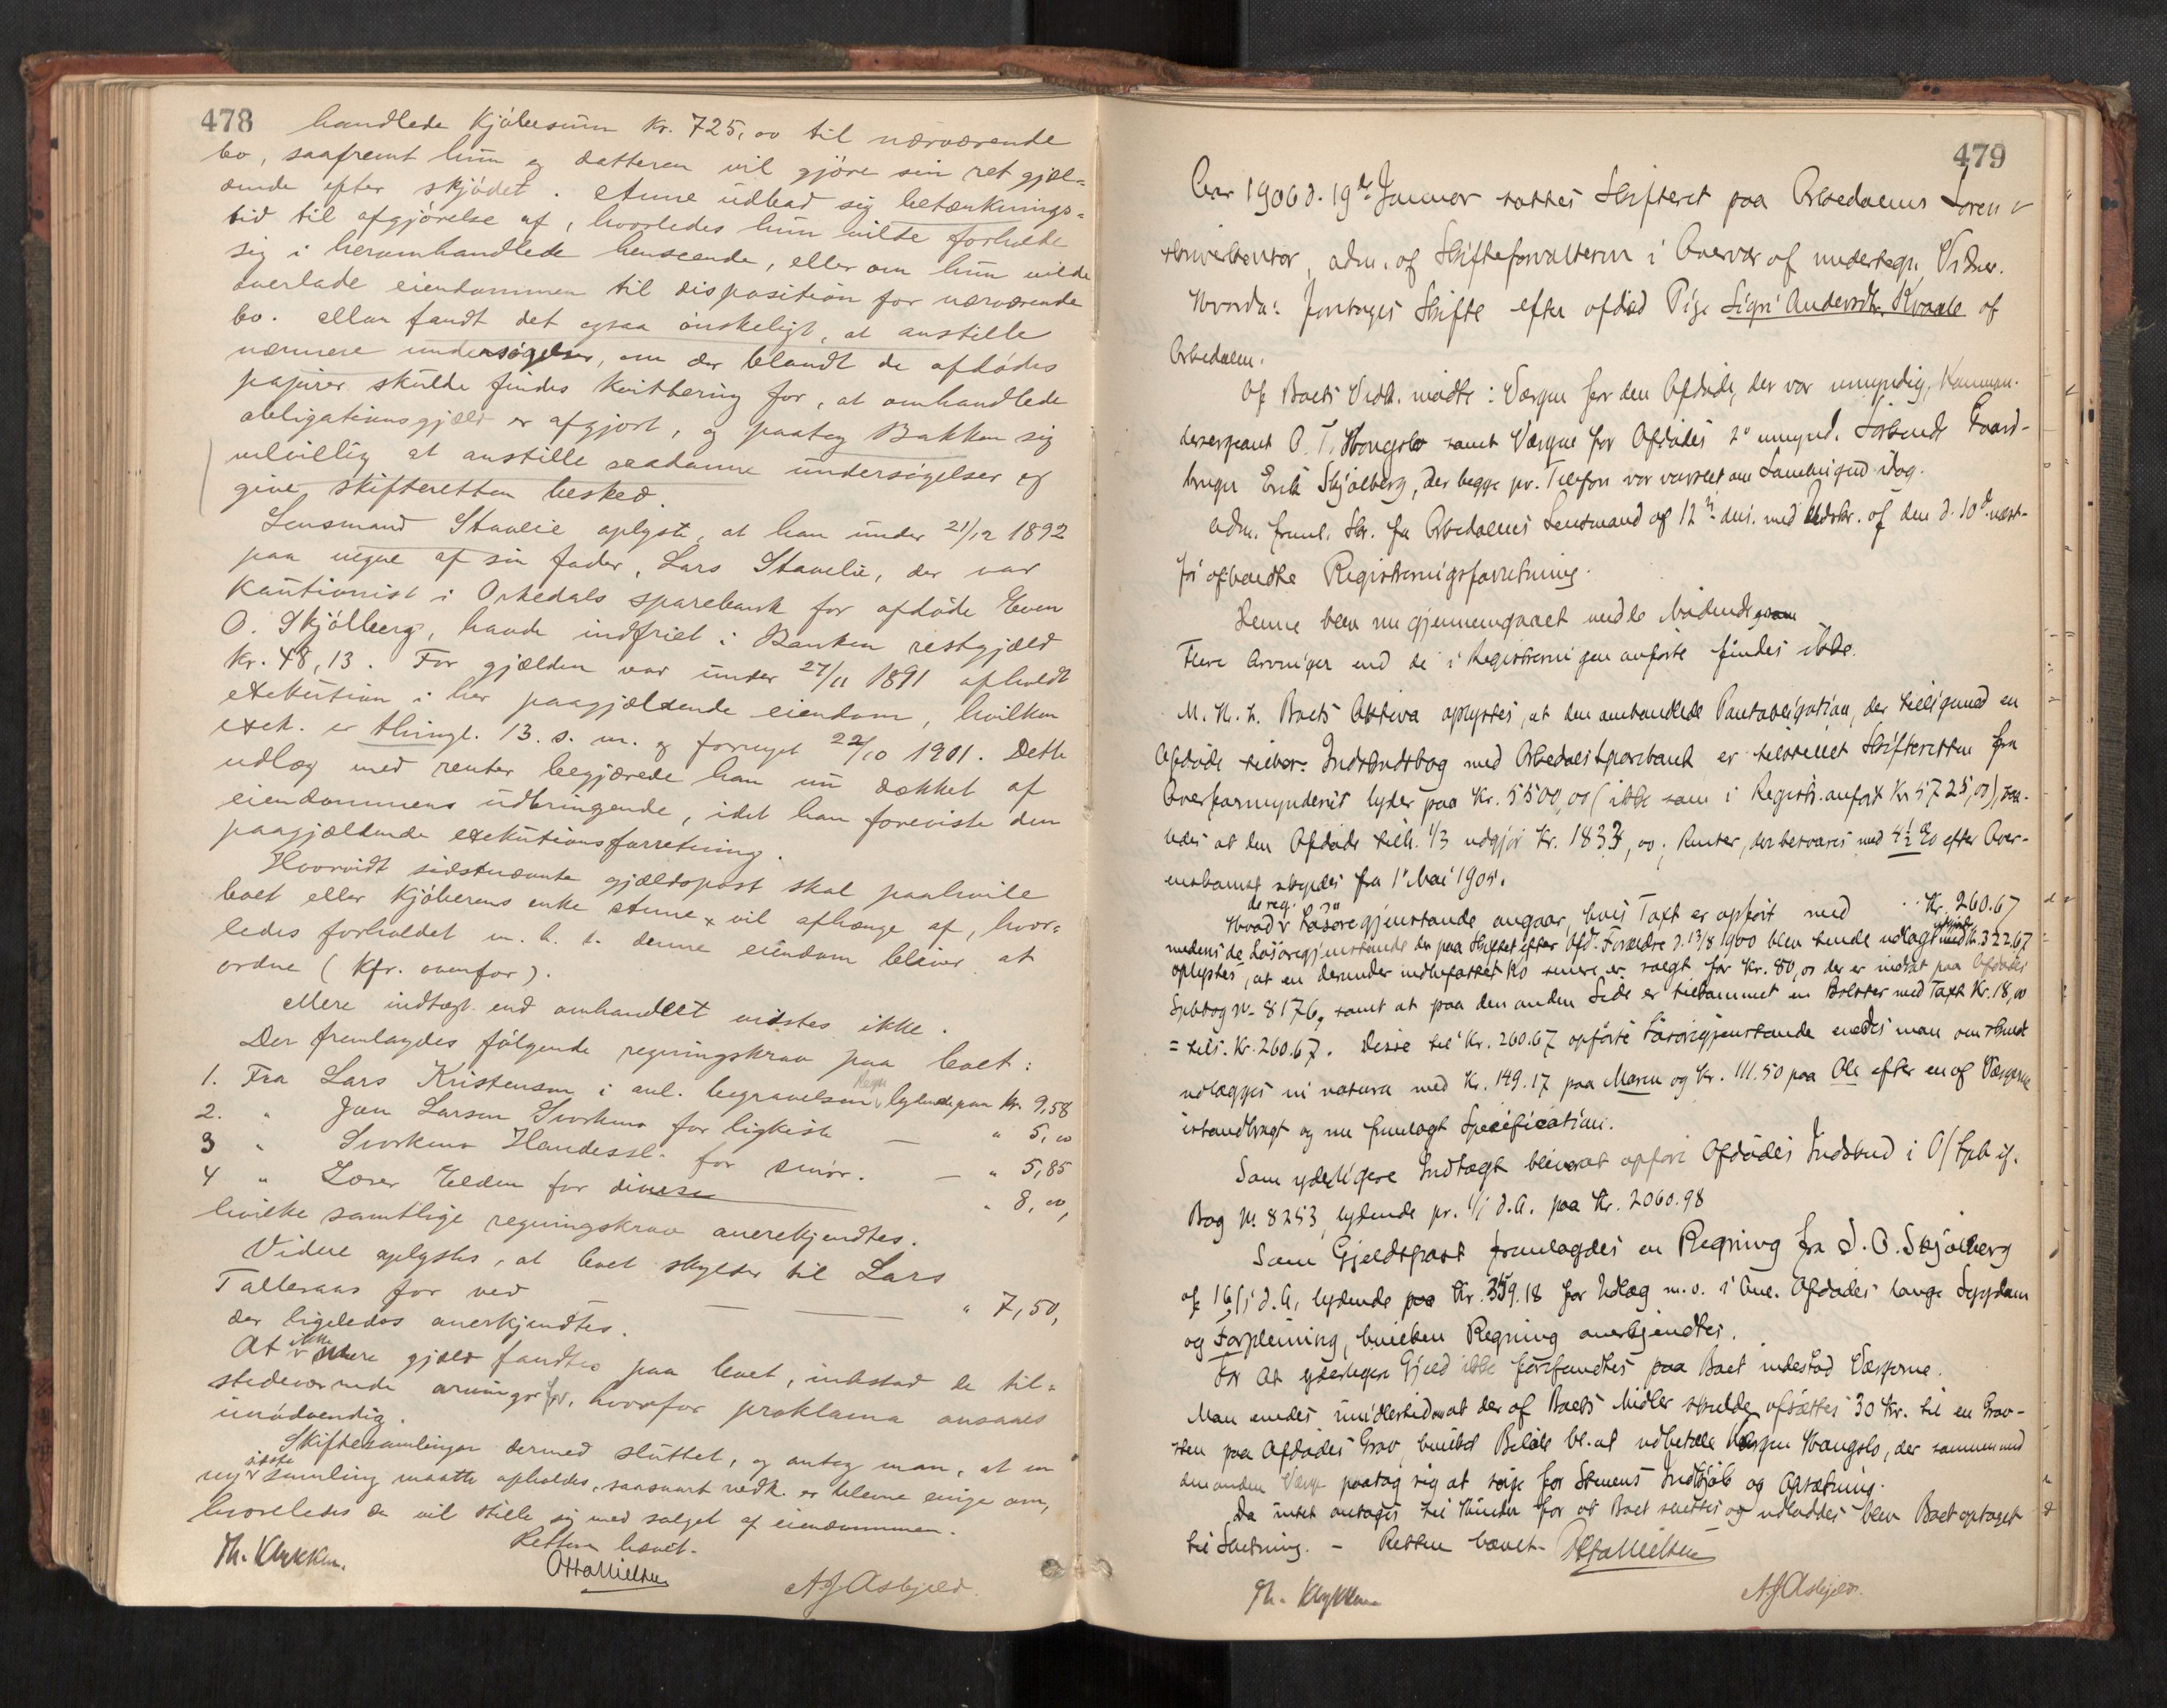 478
handlede Kjøbesum Kr. 725,00 til nærværende
bo, saafremt hun og datteren vil gjøre sin ret gjæl=
dende efter skjødet. Anne udbad sig betænknings=
tid til afgjørelse af, hvorledes hun vilde forholde
sig i heromhandlede henseende, eller om hun vilde
overlade eiendommen til disposition for nærværende
bo. Man fandt det ogsaa ønskeligt, at anstille
nærmere undersøgelser, om der blandt de afdødes
papirer skulde findes kvittering for, at omhandlede
obligationsgjæld er afgjort, og paatog Bakken sig
velvillig at anstille saadanne undersøgelser og
give skifteretten besked.
Lensmand Stavlie oplyste, at han under 21/12 1892
paa vegne af sin fader, Lars Stavlie, der var
Kautionist i Orkedals sparebank for afdøde Even
O. Skjølberg, havde indfriet i Banken restgjæld
Kr. 48,13. For gjælden var under 27/11 1891 afholdt
exekution i her paagjældende eiendom, hvilken
exek. er thingl. 13. s. m. og fornyet 22/10 1901. Dette
udlæg med renter begjærede han nu dækket af
eiendommens udbringende, idet han foreviste den
paagjældende exekutionsforretning.
Hvorvidt sidstnævnte gjældspost skal paahvile
boet eller kjøberens enke Anne vil afhænge af, hvor=
ledes forholdet m. h. t. denne eiendom bliver at
ordne (Kfr. ovenfor).
Mere indtægt end omhandlet vidstes ikke.
Der fremlagdes følgende regningskrav paa boet:
1. Fra Lars Kristensen i anl. begravelsen lydende paa Kr. 9,58
2. " Jon Larsen Svorkmo for ligkiste — " 5,00
3 " Svorkmo Handelssl. for smør. — " 5,85
4 " Lorer Elden for diverse " 8,00,
hvilke samtlige regningskrav anerkjendtes.
Videre oplystes, at boet skylder til Lars
Talleraas for ved — " 7,50,
der ligeledes anerkjendtes.
At ikke mere gjæld fandtes paa boet, indestod de til=
stedeværende arvinger for, hvorfor proklama ansaaes
unødvendig.
Skiftesamlingen dermed sluttet, og antog man, at en
ny sidste samling maatte afholdes, saasnart vedk. er blevne enige om,
hvorledes de vil stille sig med salget af eiendommen.
Retten hævet.
Th. Klykken. Otto Nielsen A J Asbjeld.
479
Aar 1906 d. 19de Januar sattes Skifteret paa Orkedalens Soren
skriverkontor, adm. af Skifteforvalteren i Overvær af undertegn. Vidner.
Hvorda: foretoges Skifte efter afdød Pige Sigri Andersdtr. Kvaale af
Orkedalen.
Af Boets Vedk. mødte: Værgen for den Afdøde, der var umyndig, Kommun-
desergeant O. T. Kongslo samt Værgen for Afdødes 2de umynd. Søskende Gaard-
bruger Erik Skjølberg, der begge pr. Telefon var varslet om Samling idag.
Adm. freml. Skr. fra Orkedalens Lensmand af 12te ds. med Udskr. af den d. 10de næst-
før afholdte Registreringsforretning.
Denne blev nu gjennemgaaet med de Mødende
Flere Arvinger end de i Registreringen anførte findes ikke.
M. H. t. Boets Aktiva oplystes, at den omhandlede Pantobligation, der tilligemed en
Afdøde tilhør. Indskudsbog med Orkedals Sparebank er tilstillet Skifteretten fra
Overformynderiet lyder paa Kr. 5500,00 (ikke som i Registr. anført Kr 5725,00), saa-
ledes at den Afdøde tilh. 1/3 udgjør Kr. 1833,00; Renter, der betvares med 4½ % efter Over-
enskomst skyldes fra 1ste Mai 1905.
Hvad de reg. Løsøregjenstande angaar, hvis Taxt er opført med Kr. 260.67
medens de Løsøregjenstande der paa Skiftet efter Afd. Forældre d. 13/8 1900 blev hende udlagt med Kr. 322.67
oplystes, at en derunder indbefattet Ko senere er solgt for Kr. 80,00 der er indsat paa Afdødes
Spbbog No 8176, samt at paa den anden Side er tilkommet en Bolster med Taxt Kr. 18,00
= tils. Kr. 260.67. Disse til Kr. 260.67 opførte Løsøregjenstande enedes man om skulde
udlægges in natura med Kr. 149.17 paa Maren og Kr. 111.50 paa Ole efter en af Værgerne
istandbragt og nu fremlagt Specification.
Som yderligere Indtægt bliver at opføre Afdødes Indskud i O/ Spb if.
Bog No 8253, lydende pr. 1/1 d. A. paa Kr. 2060.98
Som Gjældspost fremlagdes en Regning fra J. O. Skjølberg
af 16/1 d. A. lydende paa Kr. 359.18 for Udlæg m. v. i Anl. Afdødes lange Sygdom
og Forpleining, hvilken Regning anerkjendtes.
For at yderligere Gjæld ikke forefandtes paa Boet indestod Værgerne.
Man enedes imidlertid om at der af Boets Midler skulde afsættes 30 Kr. til en Grav-
sten paa Afdødes Grav, hvilket Beløb bl. at udbetale Værgen Kongslo, der sammen med
den anden Værge paatog sig at sørge for Stenens Indkjøb og Opsætning.
Da intet antoges til Hinder for at Boet sluttes og udloddes blev Boet optaget
til Slutning. — Retten hævet. Otto Nielsen
Th. Klykken A J Asbjeld.